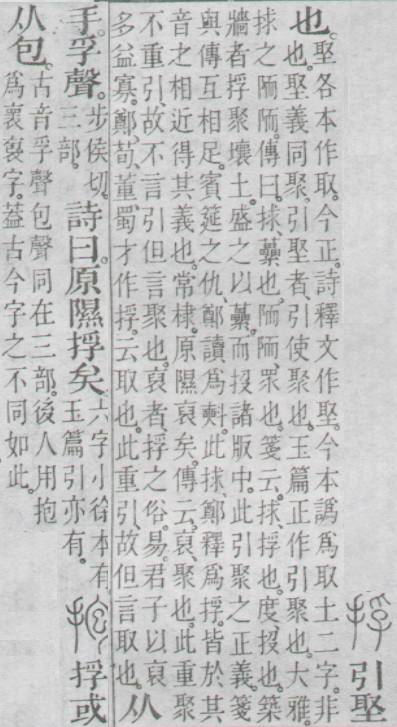 捊 引埾
也。埾各本作取。今正。詩釋文作埾。今本譌爲取土二字。非
也。埾義同聚。引埾者、引使聚也。玉篇正作引聚也。大雅。
捄之陾陾。傳曰。捄、虆也。陾陾、眾也。箋云。捄、捊也。度、投也。築
牆者捊聚壤土。盛之以虆。而投諸版中。此引聚之正義。箋
與傳互相足。賓筵之仇、鄭讀爲㪺。此捄、鄭釋爲捊。皆於其
音之相近得其義也。常棣。原隰裒矣。傳云。裒、聚也。此重聚
不重引。故不言引但言聚也。裒者捊之俗。易。君子以裒
多益寡。鄭、荀、董、蜀才作捊。云取也。此重引。故但言取也。从
手。孚聲。步侯切。三部。詩曰。原隰捊矣。六字小徐本有。玉篇引亦有。抱 捊或
从包。古音孚聲包聲同在三部。後人用抱
爲褱袌字。葢古今字之不同如此。